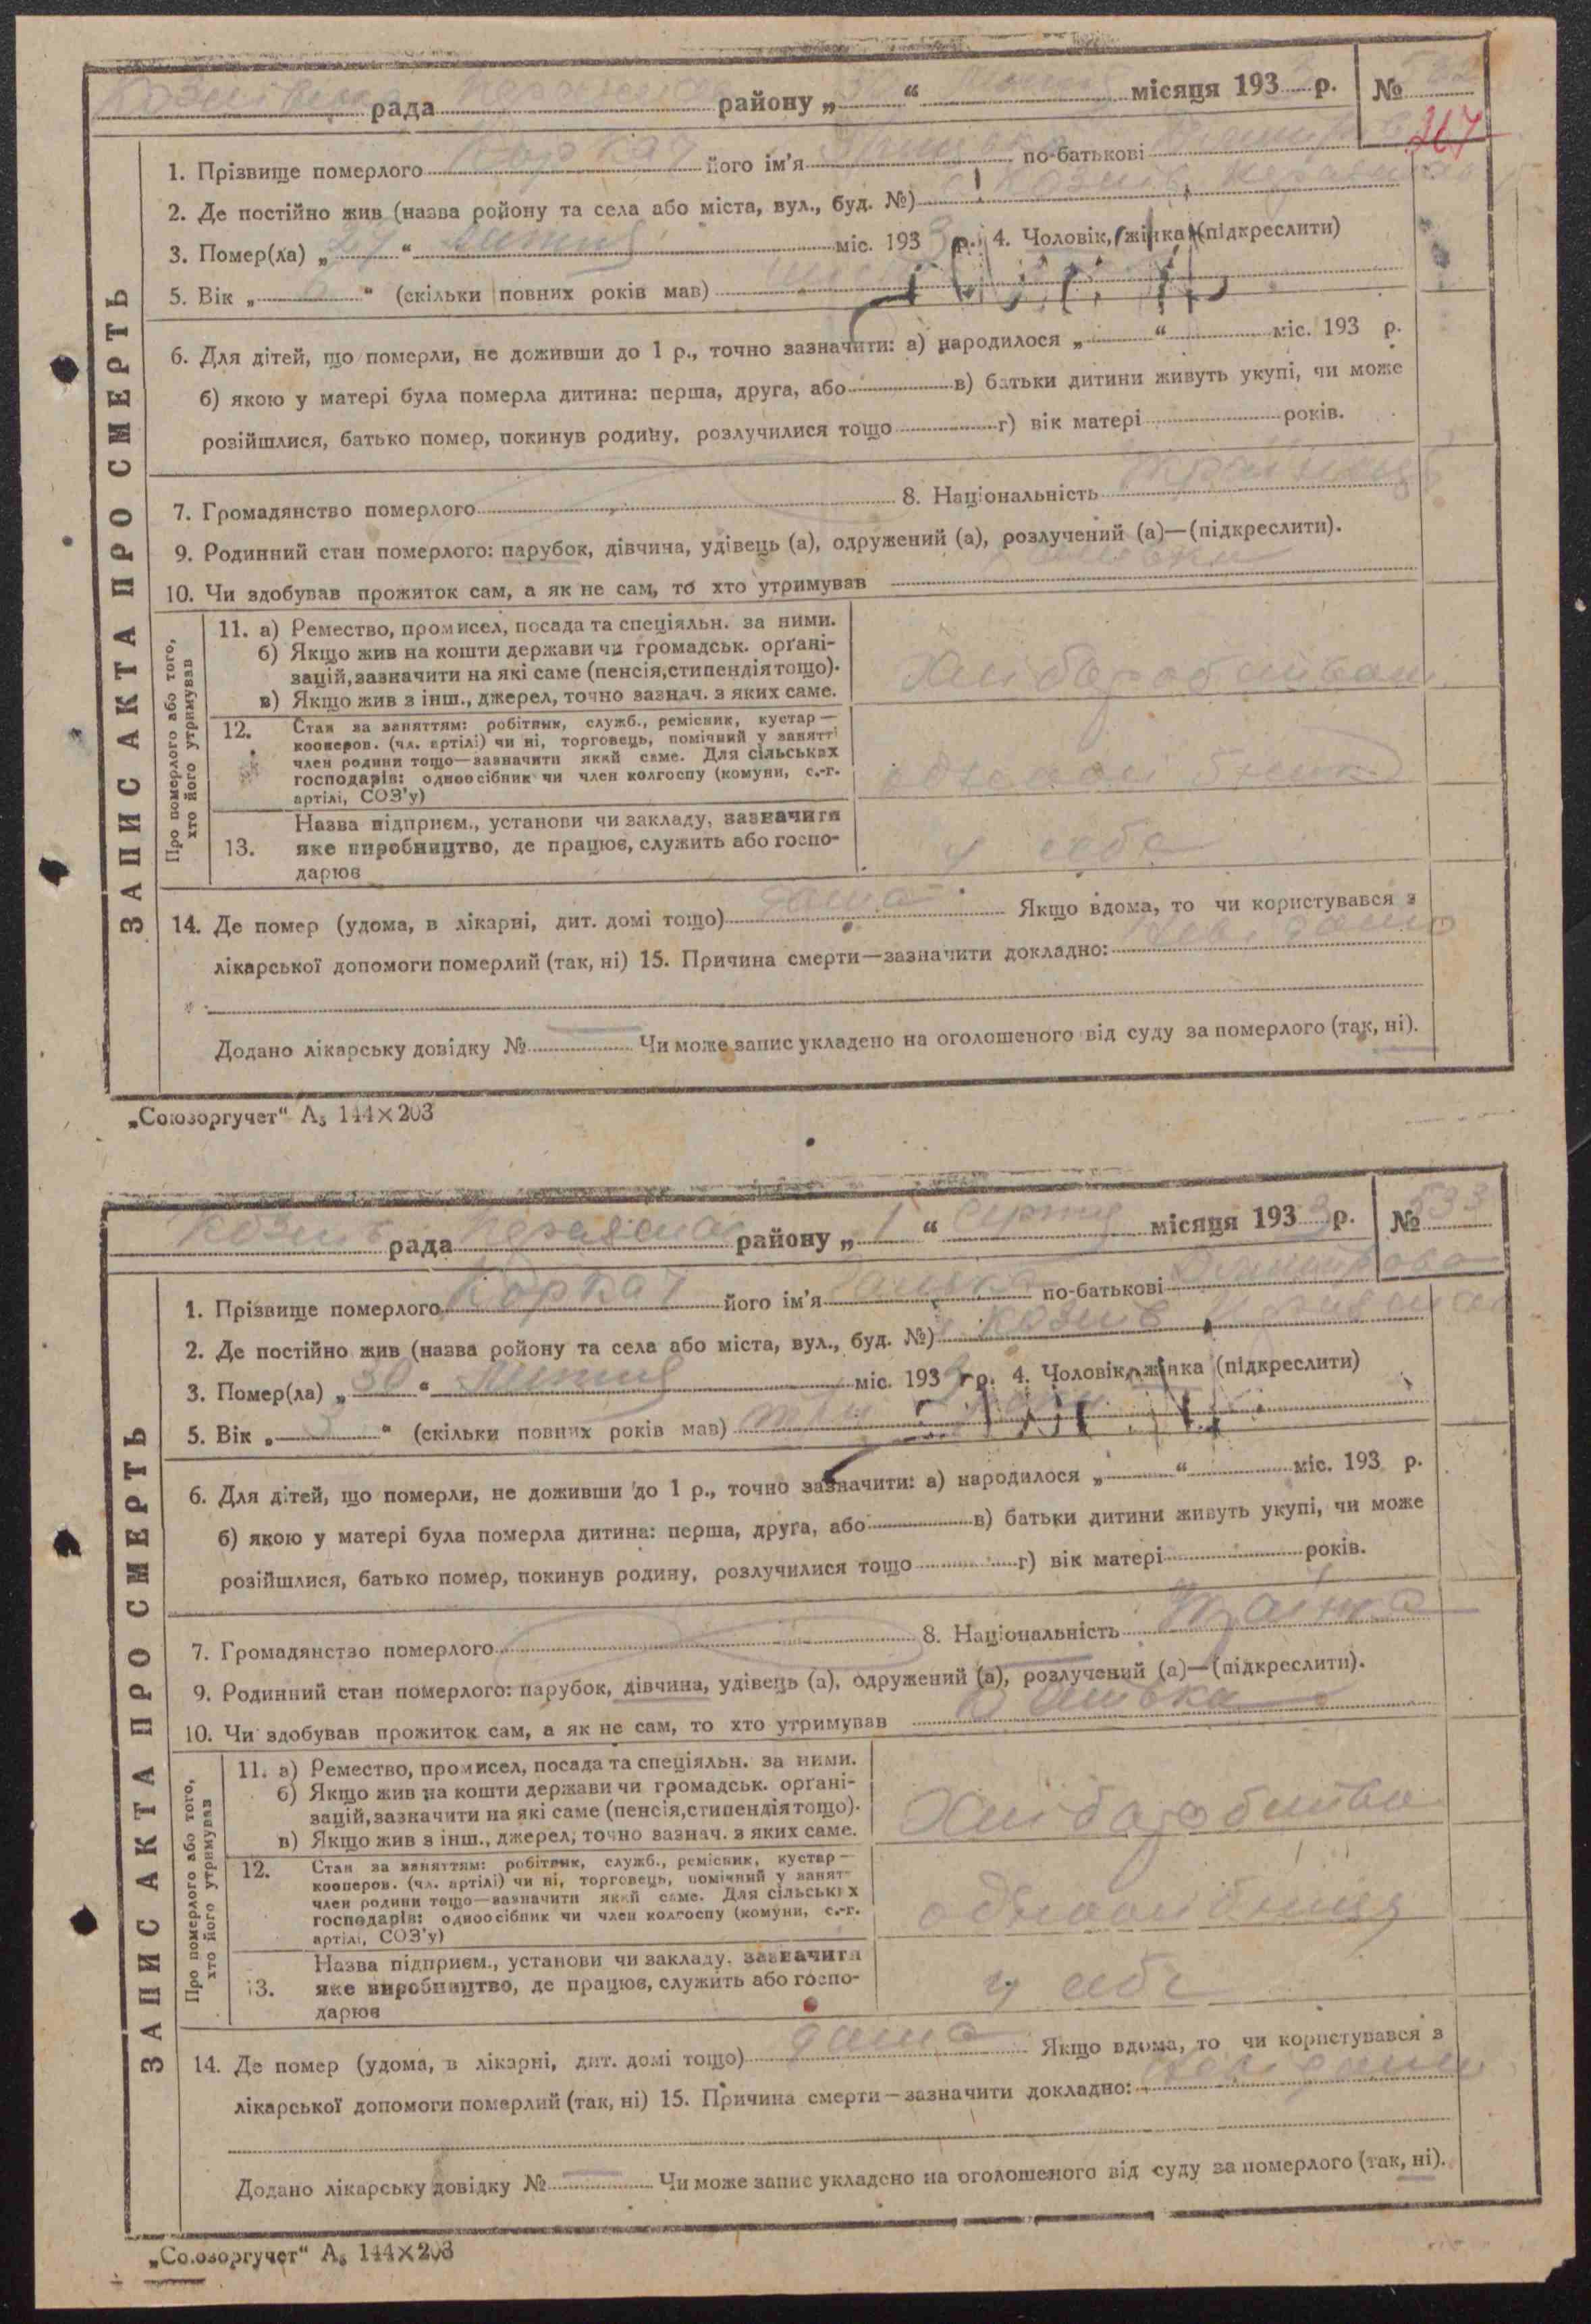 рада района „ “ місяця 193 3 р. №
217
ЗАПИС АКТА ПРО СМЕРТЬ
1. Прізвище померлого Коркач його ім'я по-батькові
2. Де постійно жив (назва ройону та села або міста, вул., буд. №)
3. Помер(ла) „ 27 “ липня міс. 193 3 р. 4. Чоловік, жінка (підкреслити)
5. Вік „ 6 “ (скільки повних років мав)
6. Для дітей, що померли, не доживши до 1 р., точно зазначити: а) народилося „ “ міс. 193 р.
б) якою у матері була померла дитина: перша, друга, або в) батьки дитини живуть укупі, чи може
розійшлися, батько помер, покинув родину, розлучилися тощо г) вік матері років.
7. Громадянство померлого 8. Національність
9. Родинний стан померлого: парубок, дівчина, удівець (а), одружений (а), розлучений (а)—(підкреслити).
10. Чи здобував прожиток сам, а як не сам, то хто утримував
Про померлого або того,
хто його утримував
11. а) Ремество, промисел, посада та спеціяльн. за ними.
б) Якщо жив на кошти держави чи громадськ. орґані-
зацій, зазначити на які саме (пенсія, стипендія тощо).
в) Якщо жив з інш., джерел, точно зазнач. з яких саме.
12. Стан за заняттям: робітник, служб., ремісник, кустар—
кооперов. (чл. артілі) чи ні, торговець, помічний у занятті
член родини тощо—зазначити який саме. Для сільських
господарів: одноосібник чи член колгоспу (комуни, с.-г.
артілі, СОЗ'у)
одноосібник
13. Назва підприєм., установи чи закладу, зазначити
яке виробництво, де працює, служить або госпо-
дарює
у себе
14. Де помер (удома, в лікарні, дит. домі тощо) дома Якщо вдома, то чи користувався з
лікарської допомоги померлий (так, ні) 15. Причина смерти—зазначити докладно: Невідомо
Додано лікарську довідку № Чи може запис укладено на оголошеного від суду за померлого (так, ні).
„Союзоргучет“ А₅ 144×203
рада району „ 1 “ Серпня місяця 193 3 р. № 533
ЗАПИС АКТА ПРО СМЕРТЬ
1. Прізвище померлого Коркач його ім'я по-батькові Дмитрова
2. Де постійно жив (назва ройону та села або міста, вул., буд. №)
3. Помер(ла) „ 30 “ липня міс. 193 3 р. 4. Чоловік, жінка (підкреслити)
5. Вік „ 3 “ (скільки повних років мав) три роки
6. Для дітей, що померли, не доживши до 1 р., точно зазначити: а) народилося „ “ міс. 193 р.
б) якою у матері була померла дитина: перша, друга, або в) батьки дитини живуть укупі, чи може
розійшлися, батько помер, покинув родину, розлучилися тощо г) вік матері років.
7. Громадянство померлого 8. Національність
9. Родинний стан померлого: парубок, дівчина, удівець (а), одружений (а), розлучений (а)—(підкреслити).
10. Чи здобував прожиток сам, а як не сам, то хто утримував
Про померлого або того,
хто його утримував
11. а) Ремество, промисел, посада та спеціяльн. за ними.
б) Якщо жив на кошти держави чи громадськ. орґані-
зацій, зазначити на які саме (пенсія, стипендія тощо).
в) Якщо жив з інш., джерел, точно зазнач. з яких саме.
12. Стан за заняттям: робітник, служб., ремісник, кустар—
кооперов. (чл. артілі) чи ні, торговець, помічний у занят-
член родини тощо—зазначити який саме. Для сільських
господарів: одноосібник чи член колгоспу (комуни, с.-г.
артілі, СОЗ'у)
13. Назва підприєм., установи чи закладу, зазначити
яке виробництво, де працює, служить або госпо-
дарює
у себе
14. Де помер (удома, в лікарні, дит. домі тощо) дома Якщо вдома, то чи користувався з
лікарської допомоги померлий (так, ні) 15. Причина смерти—зазначити докладно: Невідомо
Додано лікарську довідку № Чи може запис укладено на оголошеного від суду за померлого (так, ні).
„Союзоргучет“ А₅ 144×203